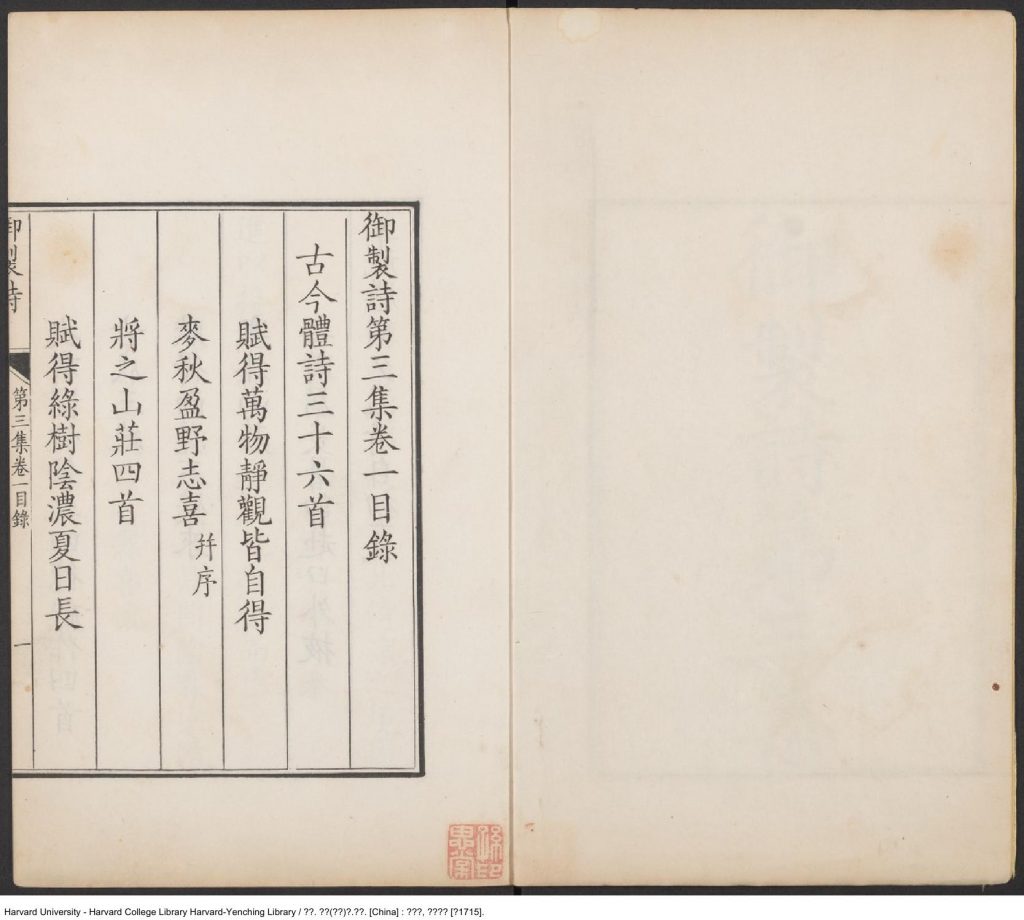 御製詩第三集卷一目錄
古今體詩三十六首
賦得萬物靜觀皆自得
麥秋盈野志喜 幷序
將之山莊四首
賦得綠樹陰濃夏日長
御製詩
第三集卷一目錄
一
Harvard University - Harvard College Library Harvard-Yenching Library / ??. ??(??)?.??. [China] : ???, ???? [?1715].